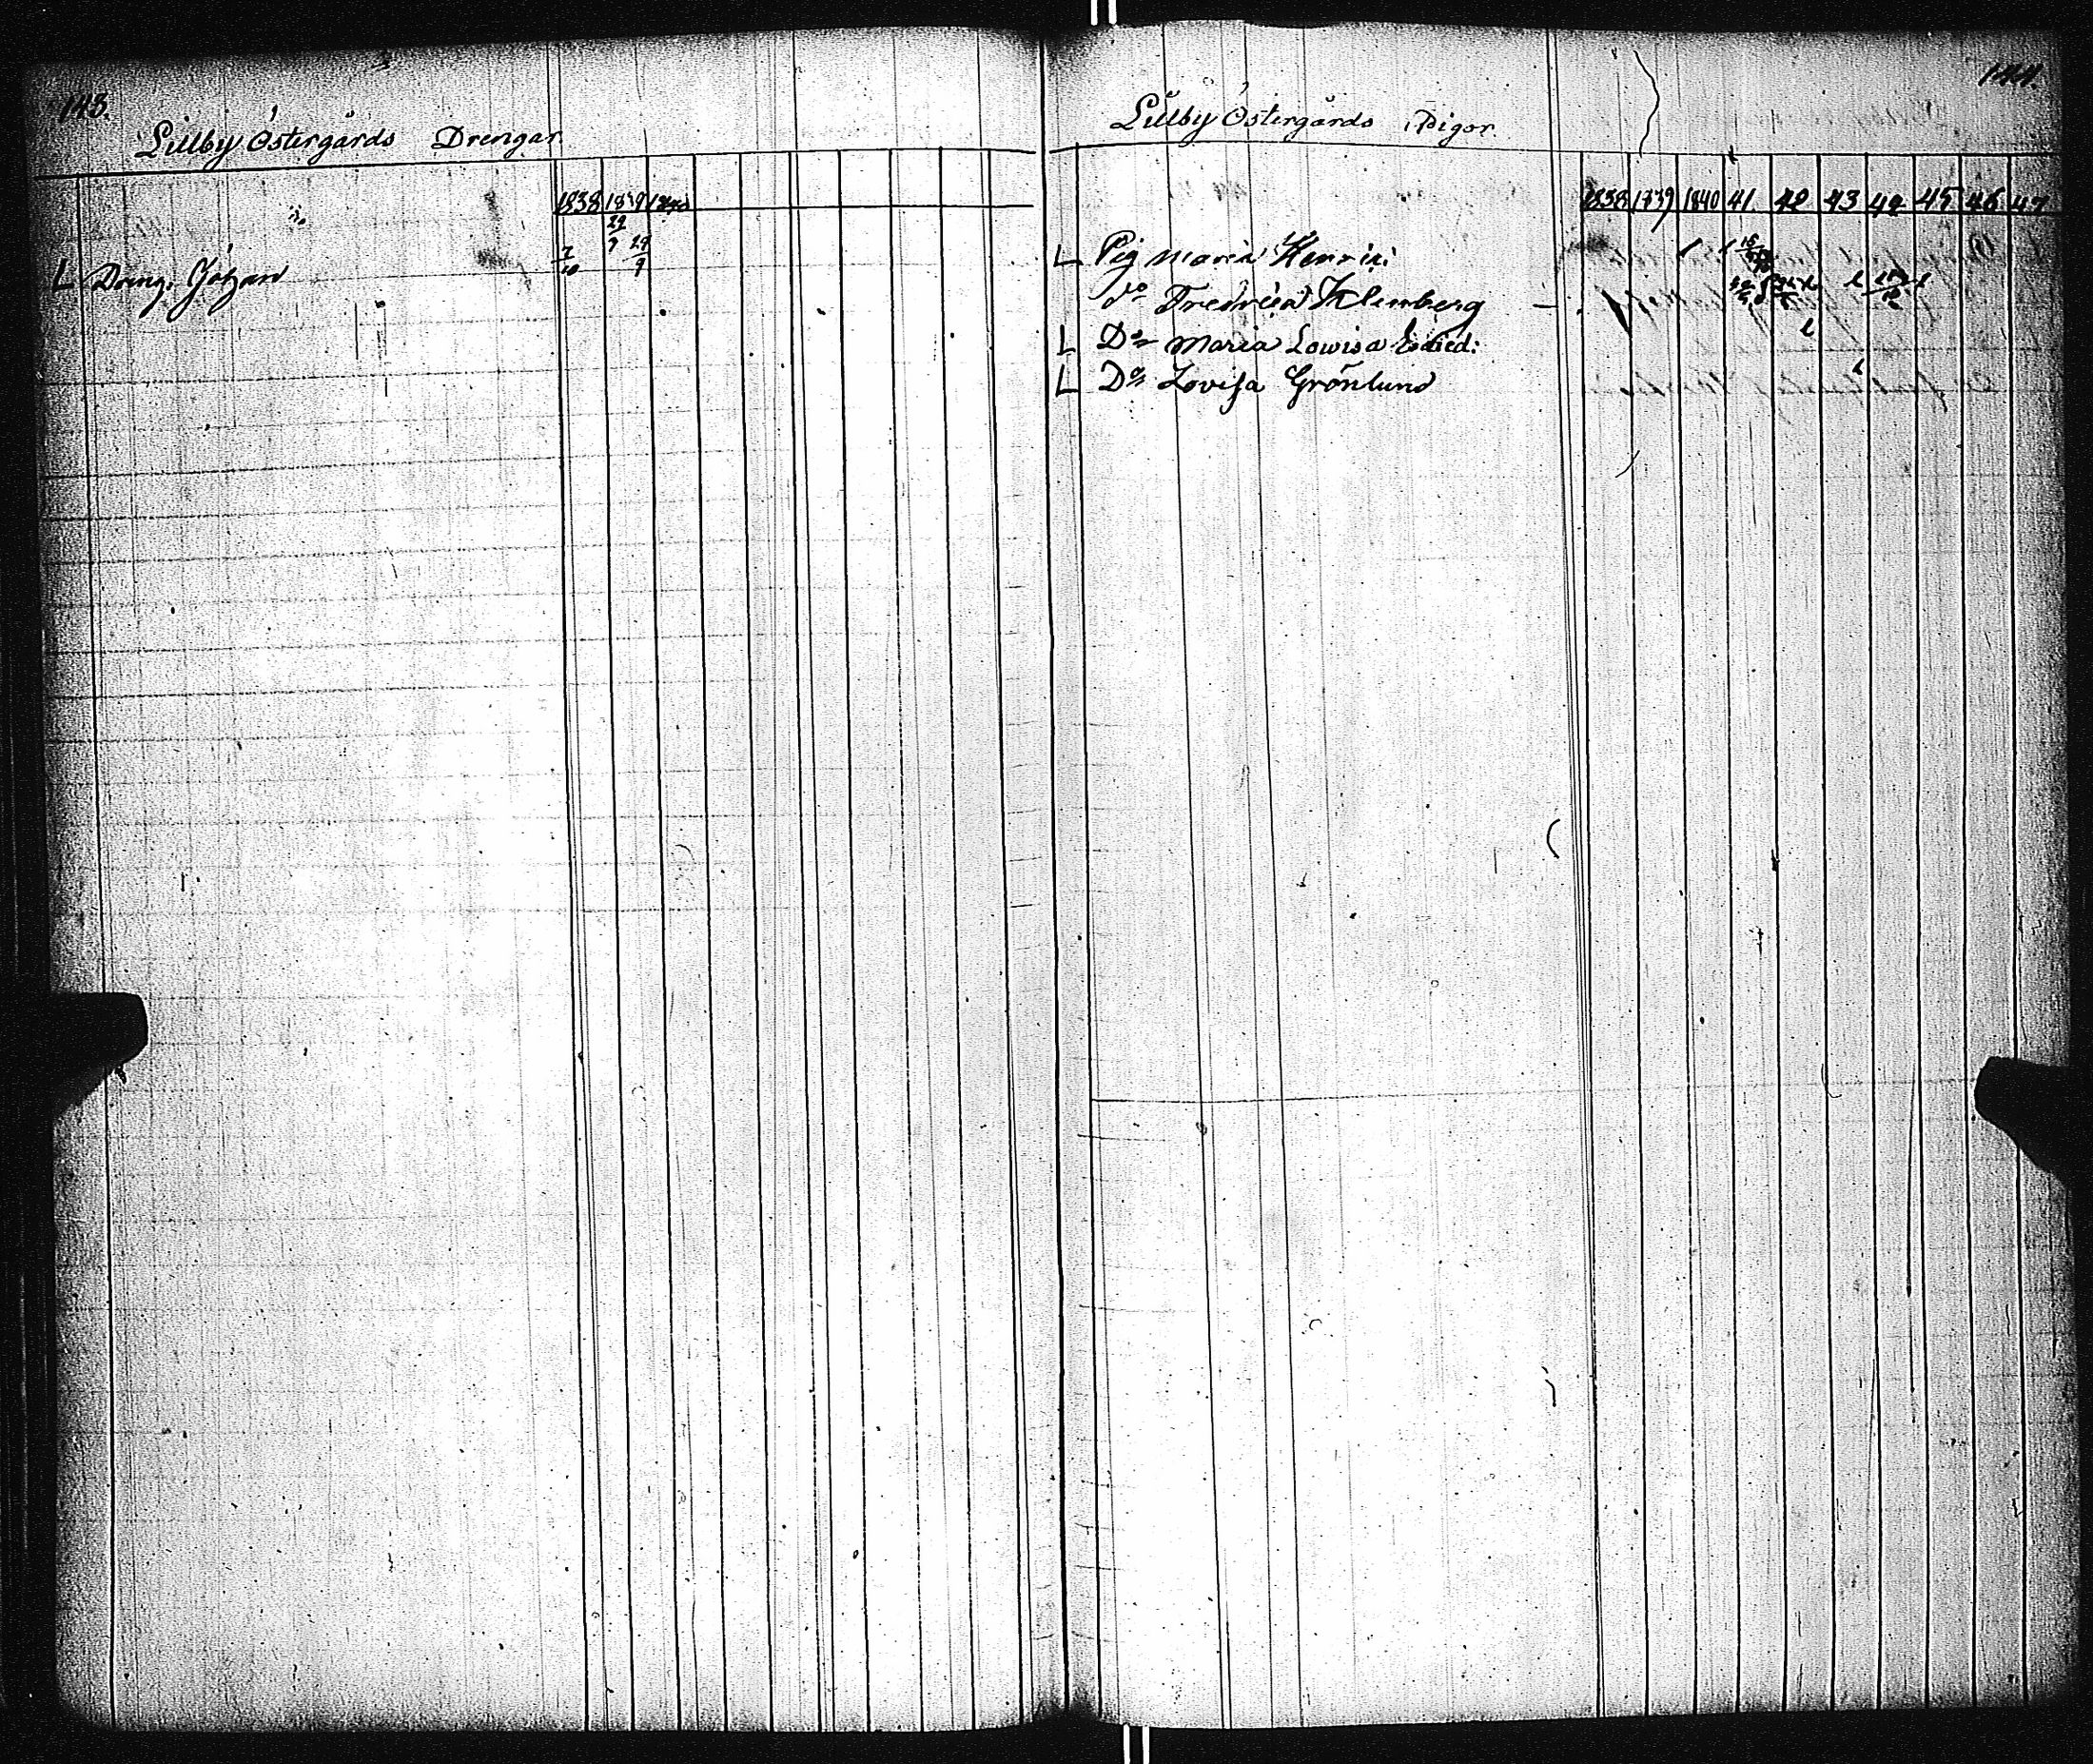 143.
Lillby Östergårds Drengar.
1838 1839 1840
29/9
L Dreng. Johan 7/10 29/9
144.
Lillby Östergårds Pigor.
1838 1839 1840 41. 42 43 44 45 46 47
L Pig Maria Henrix:
do Fredrica Klemberg
L Do Maria Lowisa
L Do Lovisa Grönlund